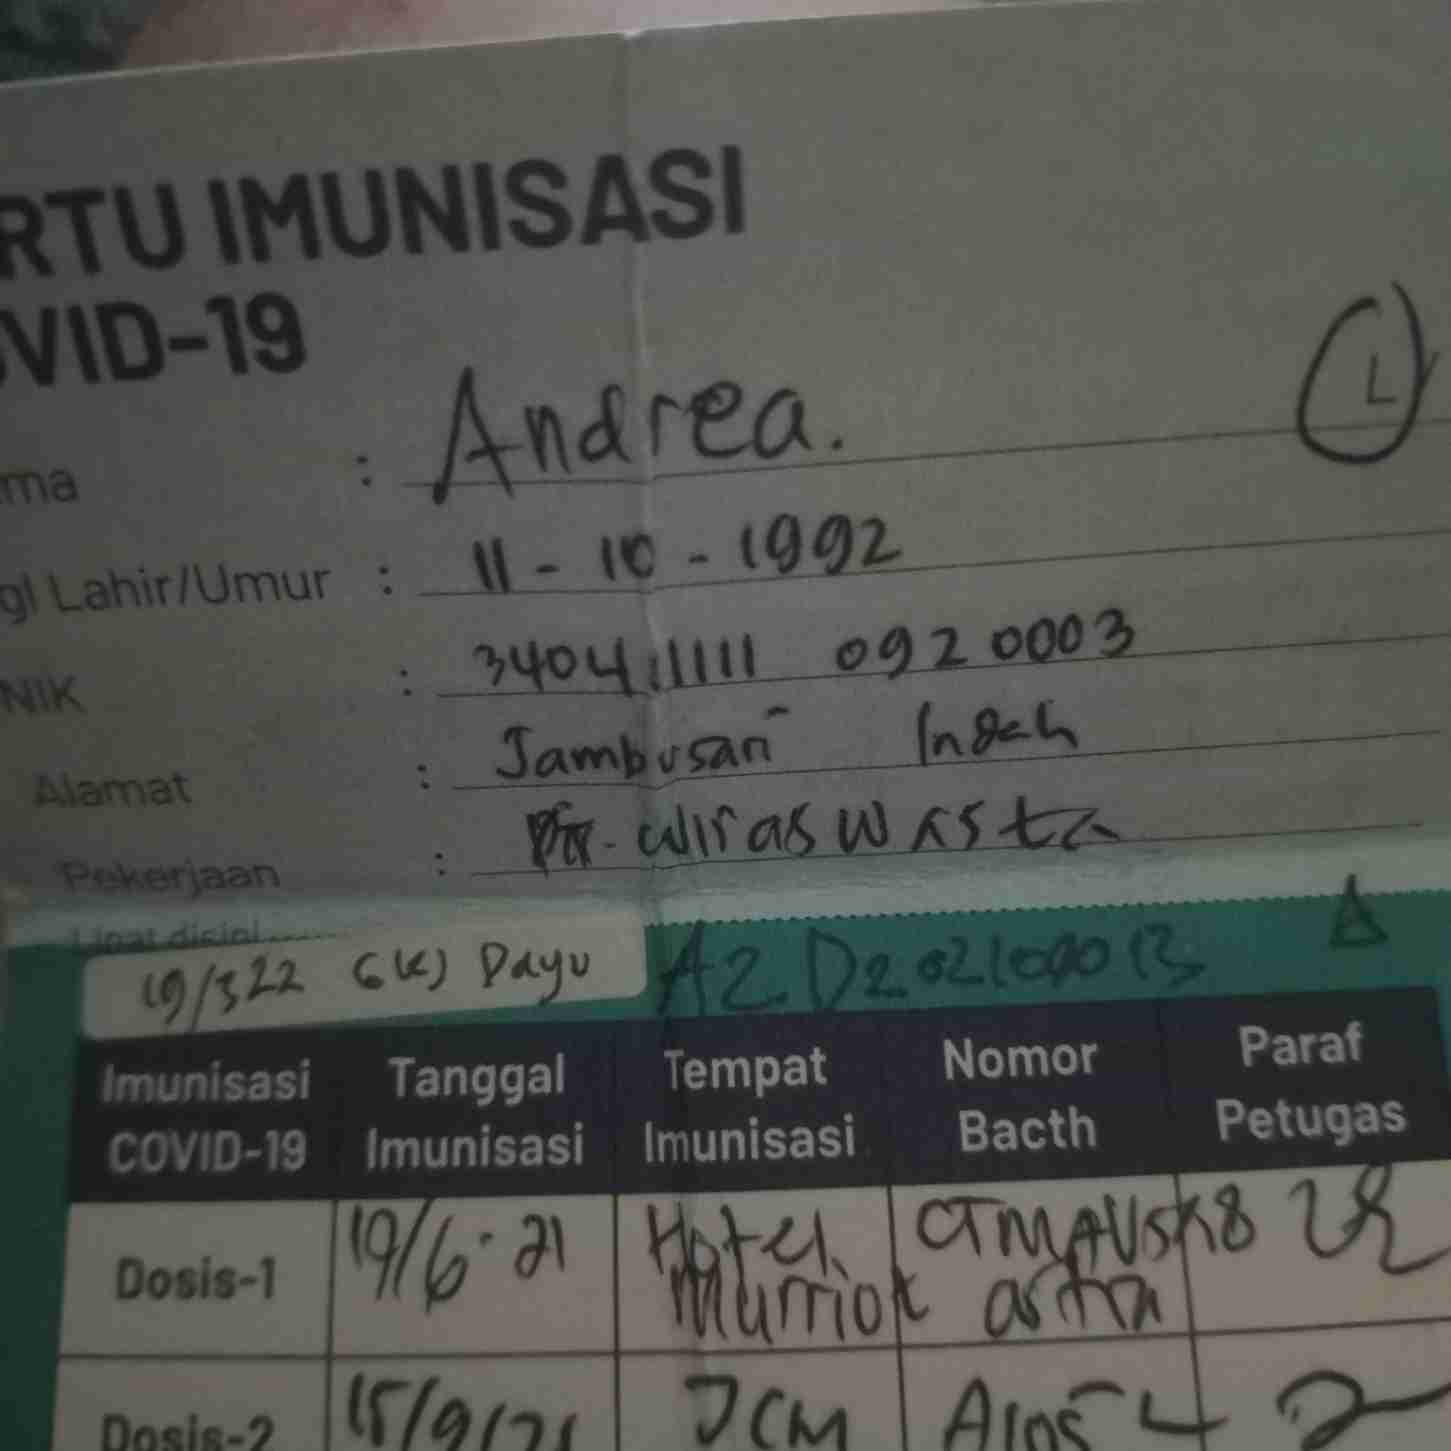 RTU IMUNISASI
OVID-19
L
ma : Andrea.
gl Lahir/Umur : 11 - 10 - 1992
NIK : 3404111110920003
Alamat : Jambusari Indah
Pekerjaan : wiraswasta
Lipat disini
19/322 Dayu
Imunisasi COVID-19 Tanggal Imunisasi Tempat Imunisasi Nomor Bacth Paraf Petugas
Dosis-1 19/6-21 Hotel
Dosis-2 15/9/21 JCM